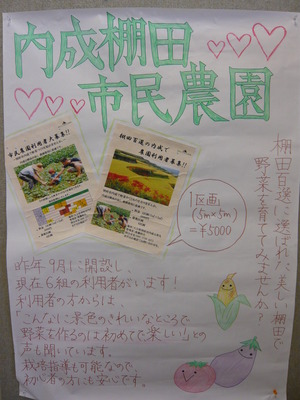 内成棚田
市民農園
市民農園利用者大募集!!
棚田百選の内成で
農園利用者募集!!
1区画
(5m×5m)
=¥5000
棚田百選に選ばれた美しい棚田で
野菜を育ててみませんか?
昨年9月に開設し、
現在6組の利用者がいます!
利用者の方からは、
「こんなに景色のきれいなところで
野菜を作るのは初めてで楽しい!」との
声も聞いています。
栽培指導も可能なので、
初心者の方にも安心です。